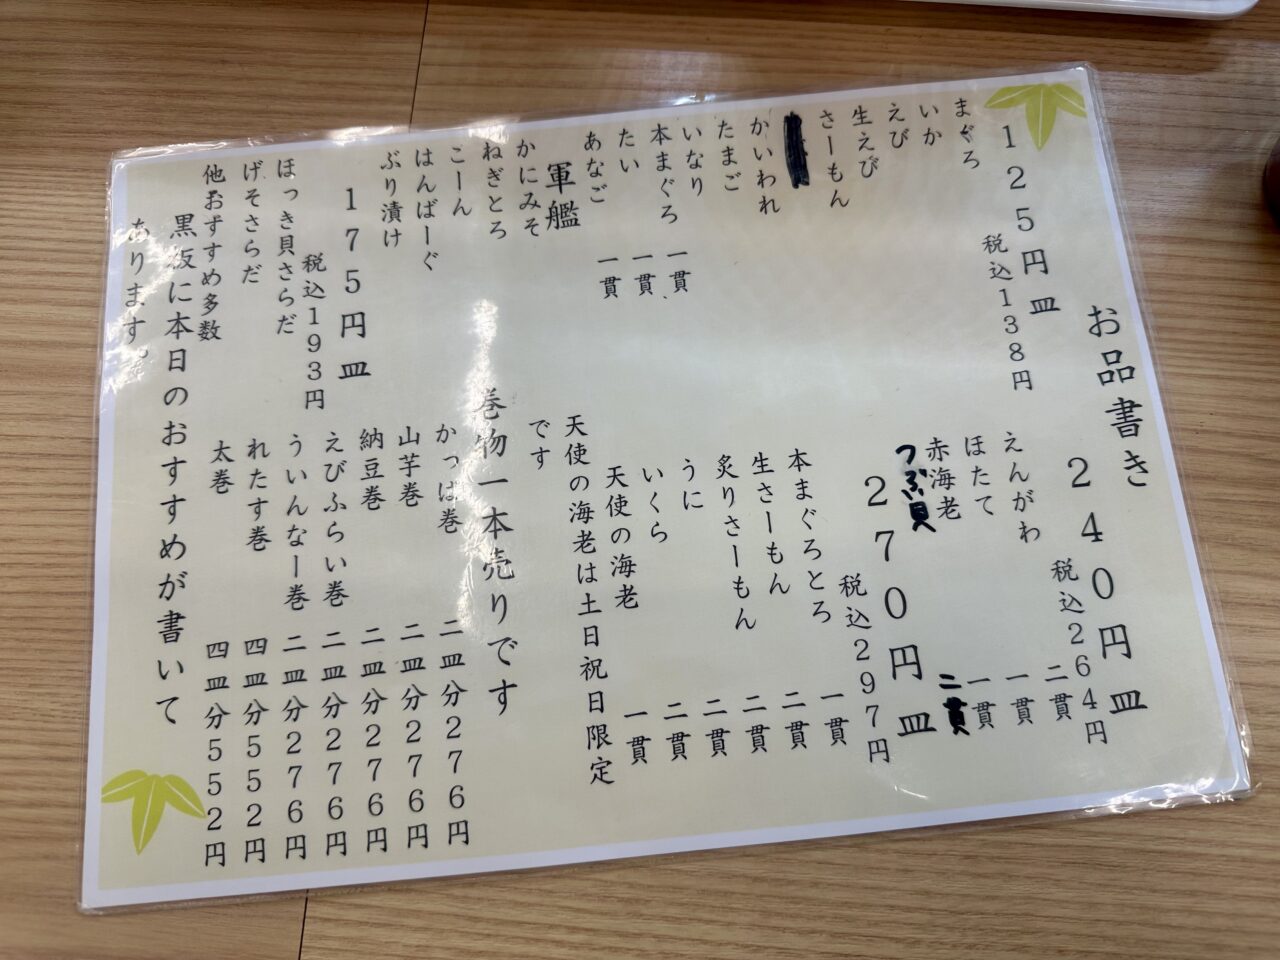 お品書き
125円皿
税込138円
まぐろ
いか
えび
生えび
さーもん
かいわれ
たまご
いなり
本まぐろ 一貫
たい 一貫
あなご 一貫
軍艦
かにみそ
ねぎとろ
こーん
はんばーぐ
ぶり漬け
175円皿
税込193円
ほっき貝さらだ
げそさらだ
他おすすめ多数
240円皿
税込264円
えんがわ 二貫
ほたて 一貫
赤海老 一貫
つぶ貝 二貫
270円皿
税込297円
本まぐろとろ 一貫
生さーもん 二貫
炙りさーもん 二貫
うに 二貫
いくら 二貫
天使の海老 一貫
天使の海老は土日祝日限定
です
巻物一本売りです
かっぱ巻 二皿分276円
山芋巻 二皿分276円
納豆巻 二皿分276円
えびふらい巻 二皿分276円
ういんなー巻 二皿分276円
れたす巻 四皿分552円
太巻 四皿分552円
黒板に本日のおすすめが書いて
あります。